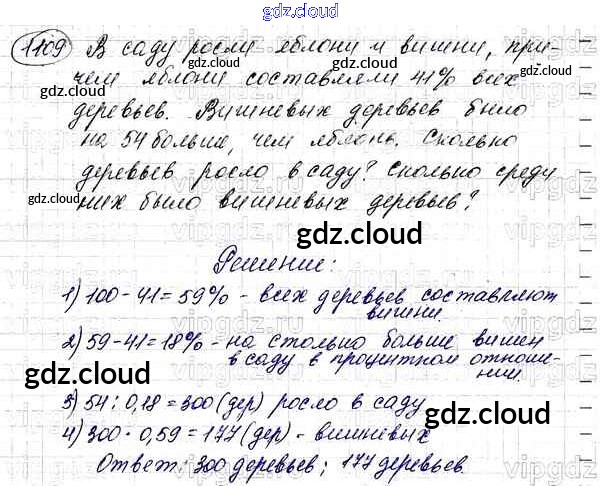 gdz.cloud
1109 В саду росли яблони и вишни, при-
чем яблони составляли 41% всех
деревьев. Вишневых деревьев было
на 54 больше, чем яблонь. Сколько
деревьев росло в саду? Сколько среди
них было вишневых деревьев?
Решение:
1) 100 - 41 = 59% - всех деревьев составляют
вишни.
2) 59 - 41 = 18% - на столько больше вишен
в саду в процентном отноше-
нии.
3) 54 : 0,18 = 300 (дер) росло в саду
4) 300 · 0,59 = 177 (дер) - вишневых
Ответ: 300 деревьев; 177 деревьев.
gdz.cloud
gdz.cloud
gdz.cloud
gdz.cloud
gdz.cloud
gdz.cloud
gdz.cloud
gdz.cloud